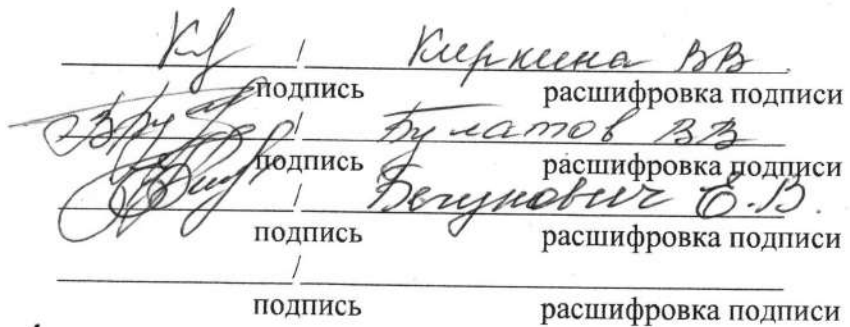 / Киркина ВВ
подпись расшифровка подписи
/ Булатов ВВ
подпись расшифровка подписи
/ Бегунович Е.В.
подпись расшифровка подписи
/
подпись расшифровка подписи